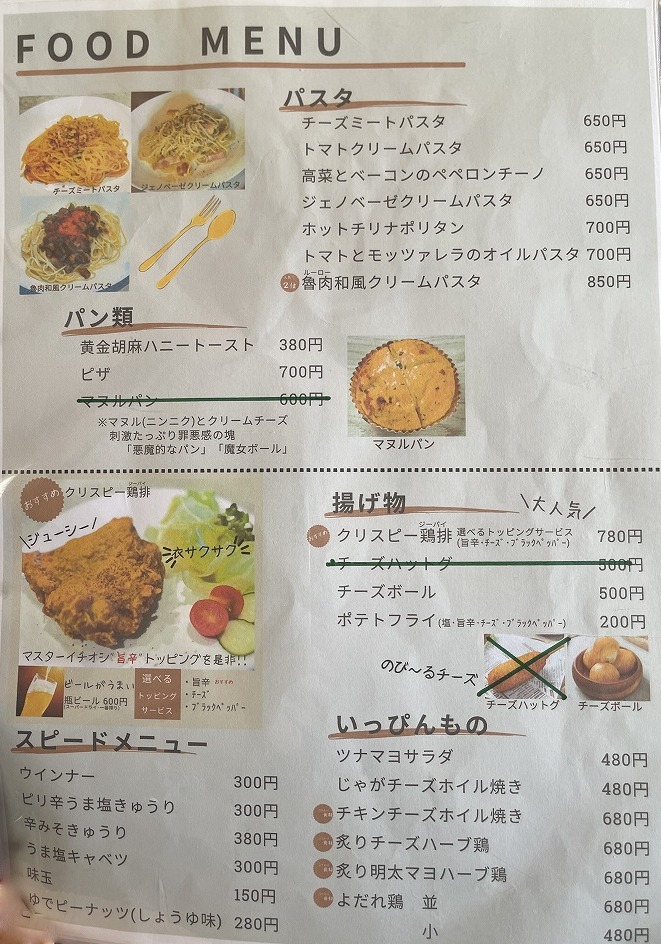 FOOD MENU
パスタ
チーズミートパスタ 650円
トマトクリームパスタ 650円
高菜とベーコンのペペロンチーノ 650円
ジェノベーゼクリームパスタ 650円
ホットチリナポリタン 700円
トマトとモッツァレラのオイルパスタ 700円
ルーロー
魯肉和風クリームパスタ 850円
チーズミートパスタ
ジェノベーゼクリームパスタ
魯肉和風クリームパスタ
パン類
黄金胡麻ハニートースト 380円
ピザ 700円
マヌルパン 600円
※マヌル(ニンニク)とクリームチーズ
刺激たっぷり罪悪感の塊
「悪魔的なパン」「魔女ボール」
マヌルパン
おすすめ
ジーパイ
クリスピー鶏排
\ジューシー/
衣サクサク
マスターイチオシ"旨辛"トッピングを是非!!
ビールがうまい
瓶ビール 600円
選べる
トッピング
サービス
・旨辛 おすすめ
・チーズ
・ブラックペッパー
揚げ物
\大人気/
おすすめ
ジーパイ
クリスピー鶏排 選べるトッピングサービス 780円
(旨辛・チーズ・ブラックペッパー)
チーズハットグ 500円
チーズボール 500円
ポテトフライ(塩・旨辛・チーズ・ブラックペッパー) 200円
のび〜るチーズ
チーズハットグ
チーズボール
スピードメニュー
ウインナー 300円
ピリ辛うま塩きゅうり 300円
辛みそきゅうり 380円
うま塩キャベツ 300円
味玉 150円
ゆでピーナッツ(しょうゆ味) 280円
いっぴんもの
ツナマヨサラダ 480円
じゃがチーズホイル焼き 480円
チキンチーズホイル焼き 680円
炙りチーズハーブ鶏 680円
炙り明太マヨハーブ鶏 680円
よだれ鶏 並 680円
小 480円